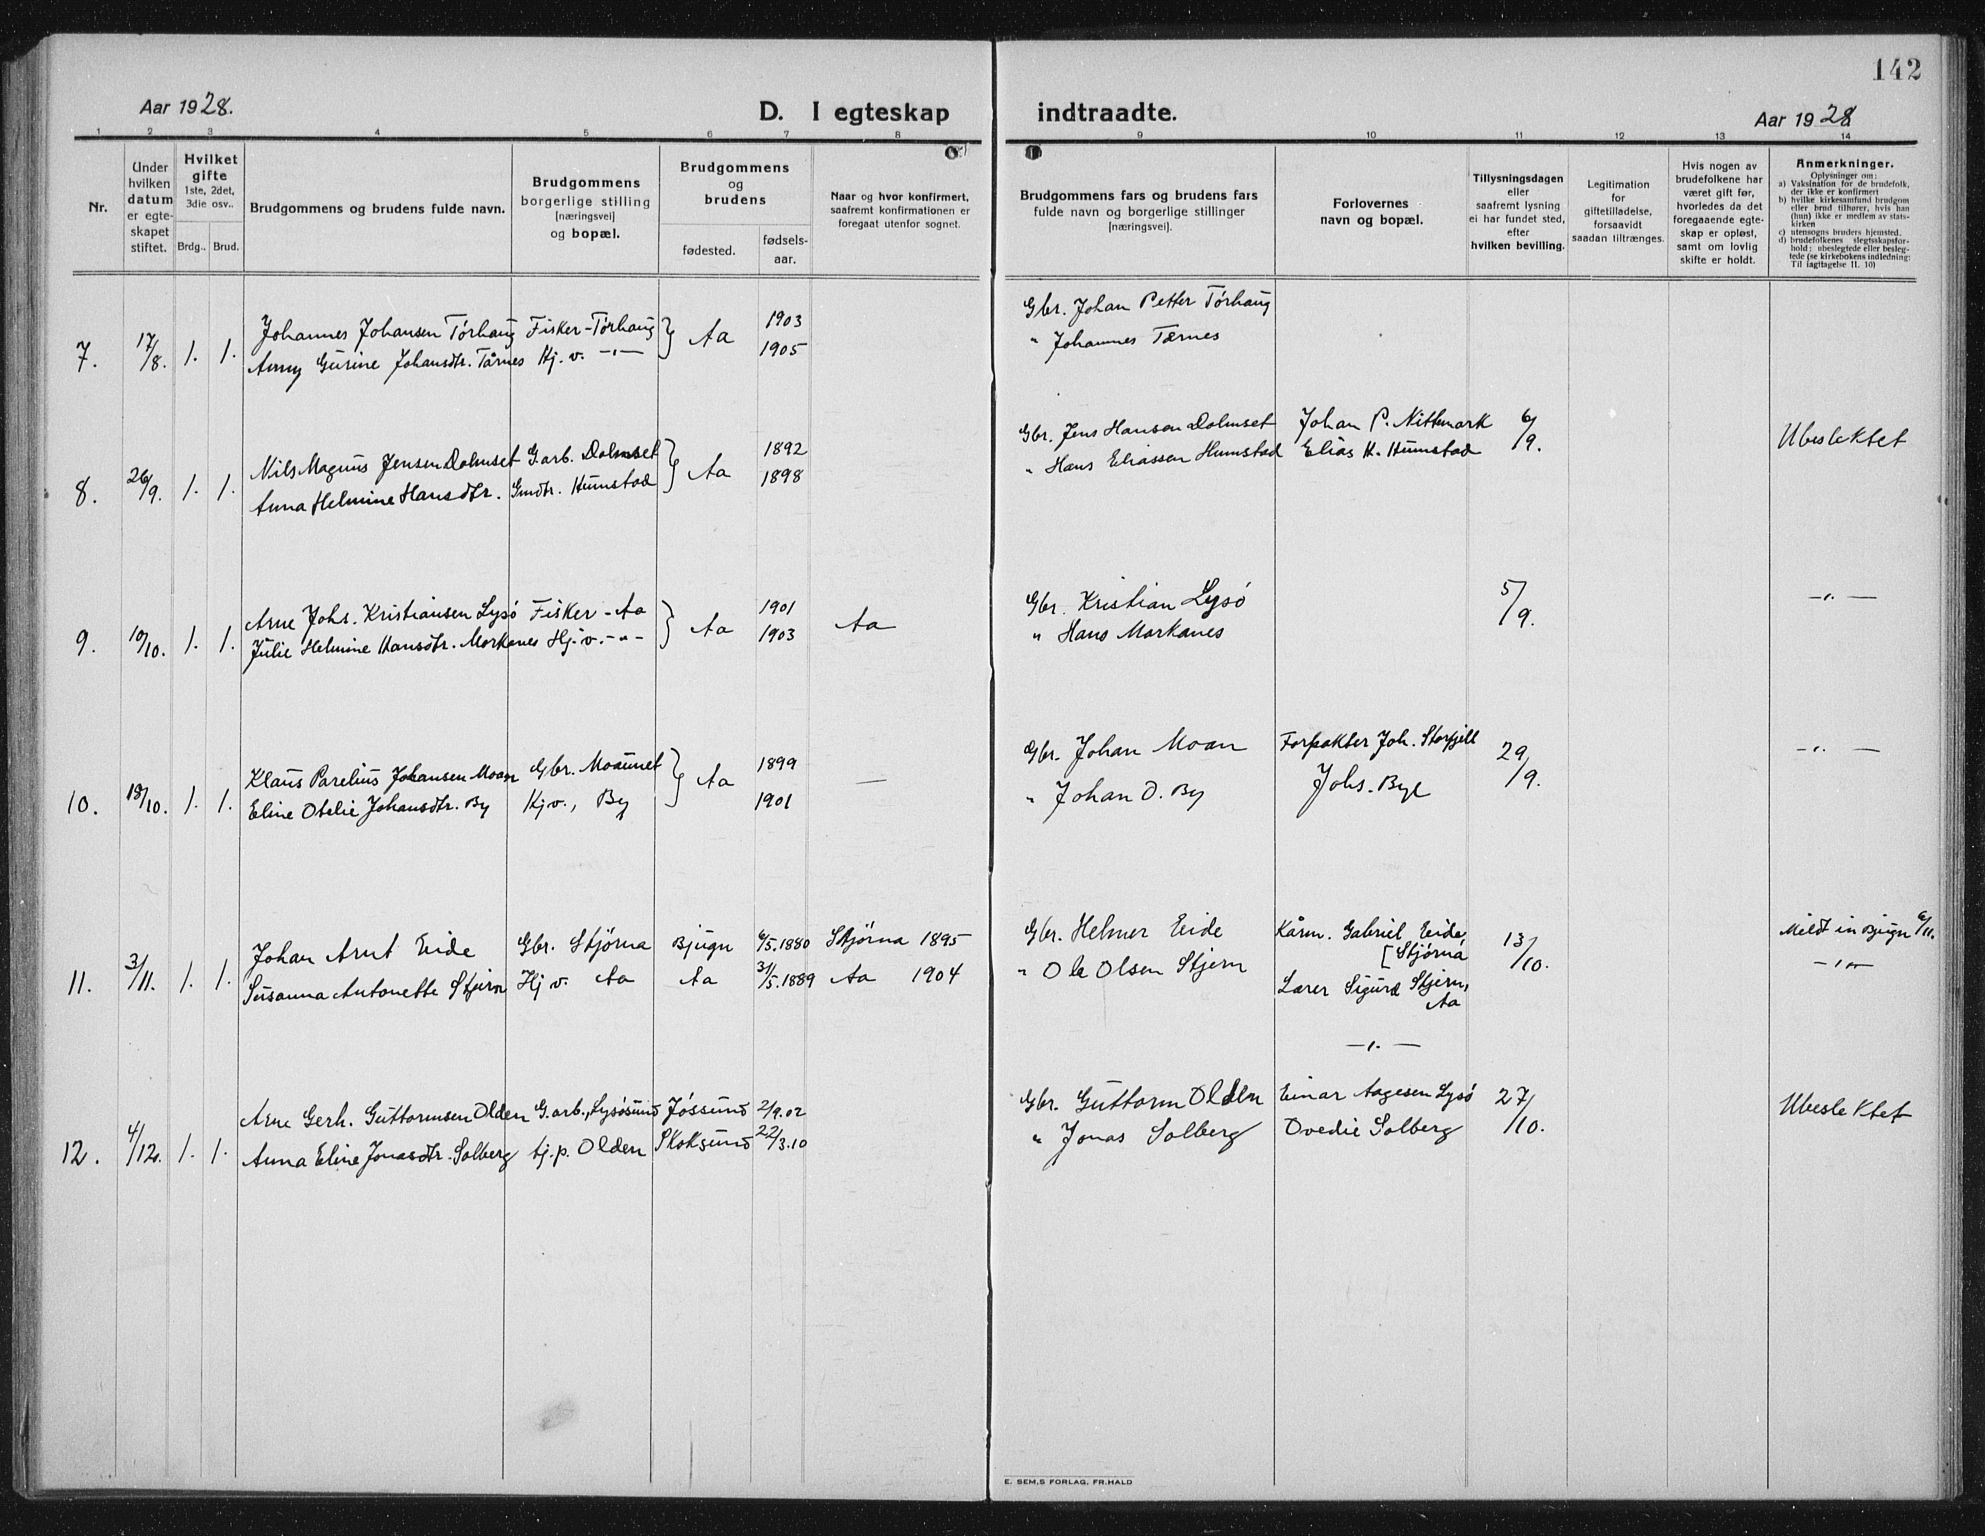 142
Aar 1928.
D. I egteskap indtraadte.
Aar 1928
1 2 3 4 5 6 7 8 9 10 11 12 13 14
Nr.
Under hvilken datum er egteskapet stiftet.
Hvilket gifte
1ste, 2det, 3die osv..
Brdg.. Brud.
Brudgommens og brudens fulde navn.
Brudgommens borgerlige stilling [næringsvei] og bopæl.
Brudgommens og brudens
fødested.
fødselsaar.
Naar og hvor konfirmert, saafremt konfirmationen er foregaat utenfor sognet.
Brudgommens fars og brudens fars fulde navn og borgerlige stillinger [næringsvei].
Forlovernes navn og bopæl.
Tillysningsdagen eller saafremt lysning ei har fundet sted, efter hvilken bevilling.
Legitimation for giftetilladelse, forsaavidt saadan tiltrænges.
Hvis nogen av brudefolkene har været gift før, hvorledes da det foregaaende egteskap er opløst, samt om lovlig skifte er holdt.
Anmerkninger.
Oplysninger om:
a) Vaksination for de brudefolk, der ikke er konfirmert
b) hvilke kirkesamfund brudgom eller brud tilhører, hvis han (hun) ikke er medlem av statskirken
c) utensogns bruders hjemsted.
d) brudefolkenes slegtsskapsforhold: ubeslegtede eller beslegtede (se kirkebokens indledning: Til iagttagelse II. 10)
7. 17/8. 1. 1. Johannes Johansen Tørhaug Fisker - Tørhaug } Aa 1903 Gbr. Johan Petter Tørhaug
Anny Gurine Johansdtr. Tårnes Hj. v. -"- 1905 " Johannes Tærnes
8. 26/9. 1. 1. Nils Magnus Jensen Dolmset G. arb. Dolmset } Aa 1892 Gbr. Jens Hansen Dolmset Johan P. Nittemark 6/9. Ubeslektet
Anna Helmine Hansdtr. Gmdtr. Humstad 1898 " Hans Eliassen Humstad Elias H. Humstad
9. 10/10. 1. 1. Arne Johs. Kristiansen Lysø Fisker - Aa } Aa 1901 Aa Gbr. Kristian Lysø 5/9. -"-
Julie Helmine Hansdtr. Morkanes Hj. v. -"- 1903 " Hans Morkanes
10. 18/10. 1. 1. Klaus Parelius Johansen Moan Gbr. Moaunet } Aa 1899 — Gbr. Johan Moan Forpakter Joh. Storfjell 29/9. -"-
Eline Otelie Johansdtr. By Hj v., By 1901 " Johan O. By Johs. Bye
11. 3/11. 1. 1. Johan Arnt Eide Gbr. Stjørna Bjugn 6/5. 1880 Stjørna 1895 Gbr. Helmer Eide Kårm. Gabriel Eide, [Stjørna 13/10. Meldt in Bjugn 6/11.
Susanna Antonette Stjern Hj v. Aa Aa 31/5. 1889 Aa 1904 " Ole Olsen Stjern Lærer Sigurd Stjern, Aa -"-
-"-
12. 4/12. 1. 1. Arne Gerh. Guttormsen Olden G. arb., Lysøsund Jøssund 2/9. 02 Gbr. Guttorm Olden Einar Aagesen Lysø 27/10. Ubeslektet
Anna Eline Jonasdtr. Solberg tj. p. Olden Skoksund 22/3. 10 " Jonas Solberg Ovedie Solberg
E. SEM,S FORLAG, FR.HALD